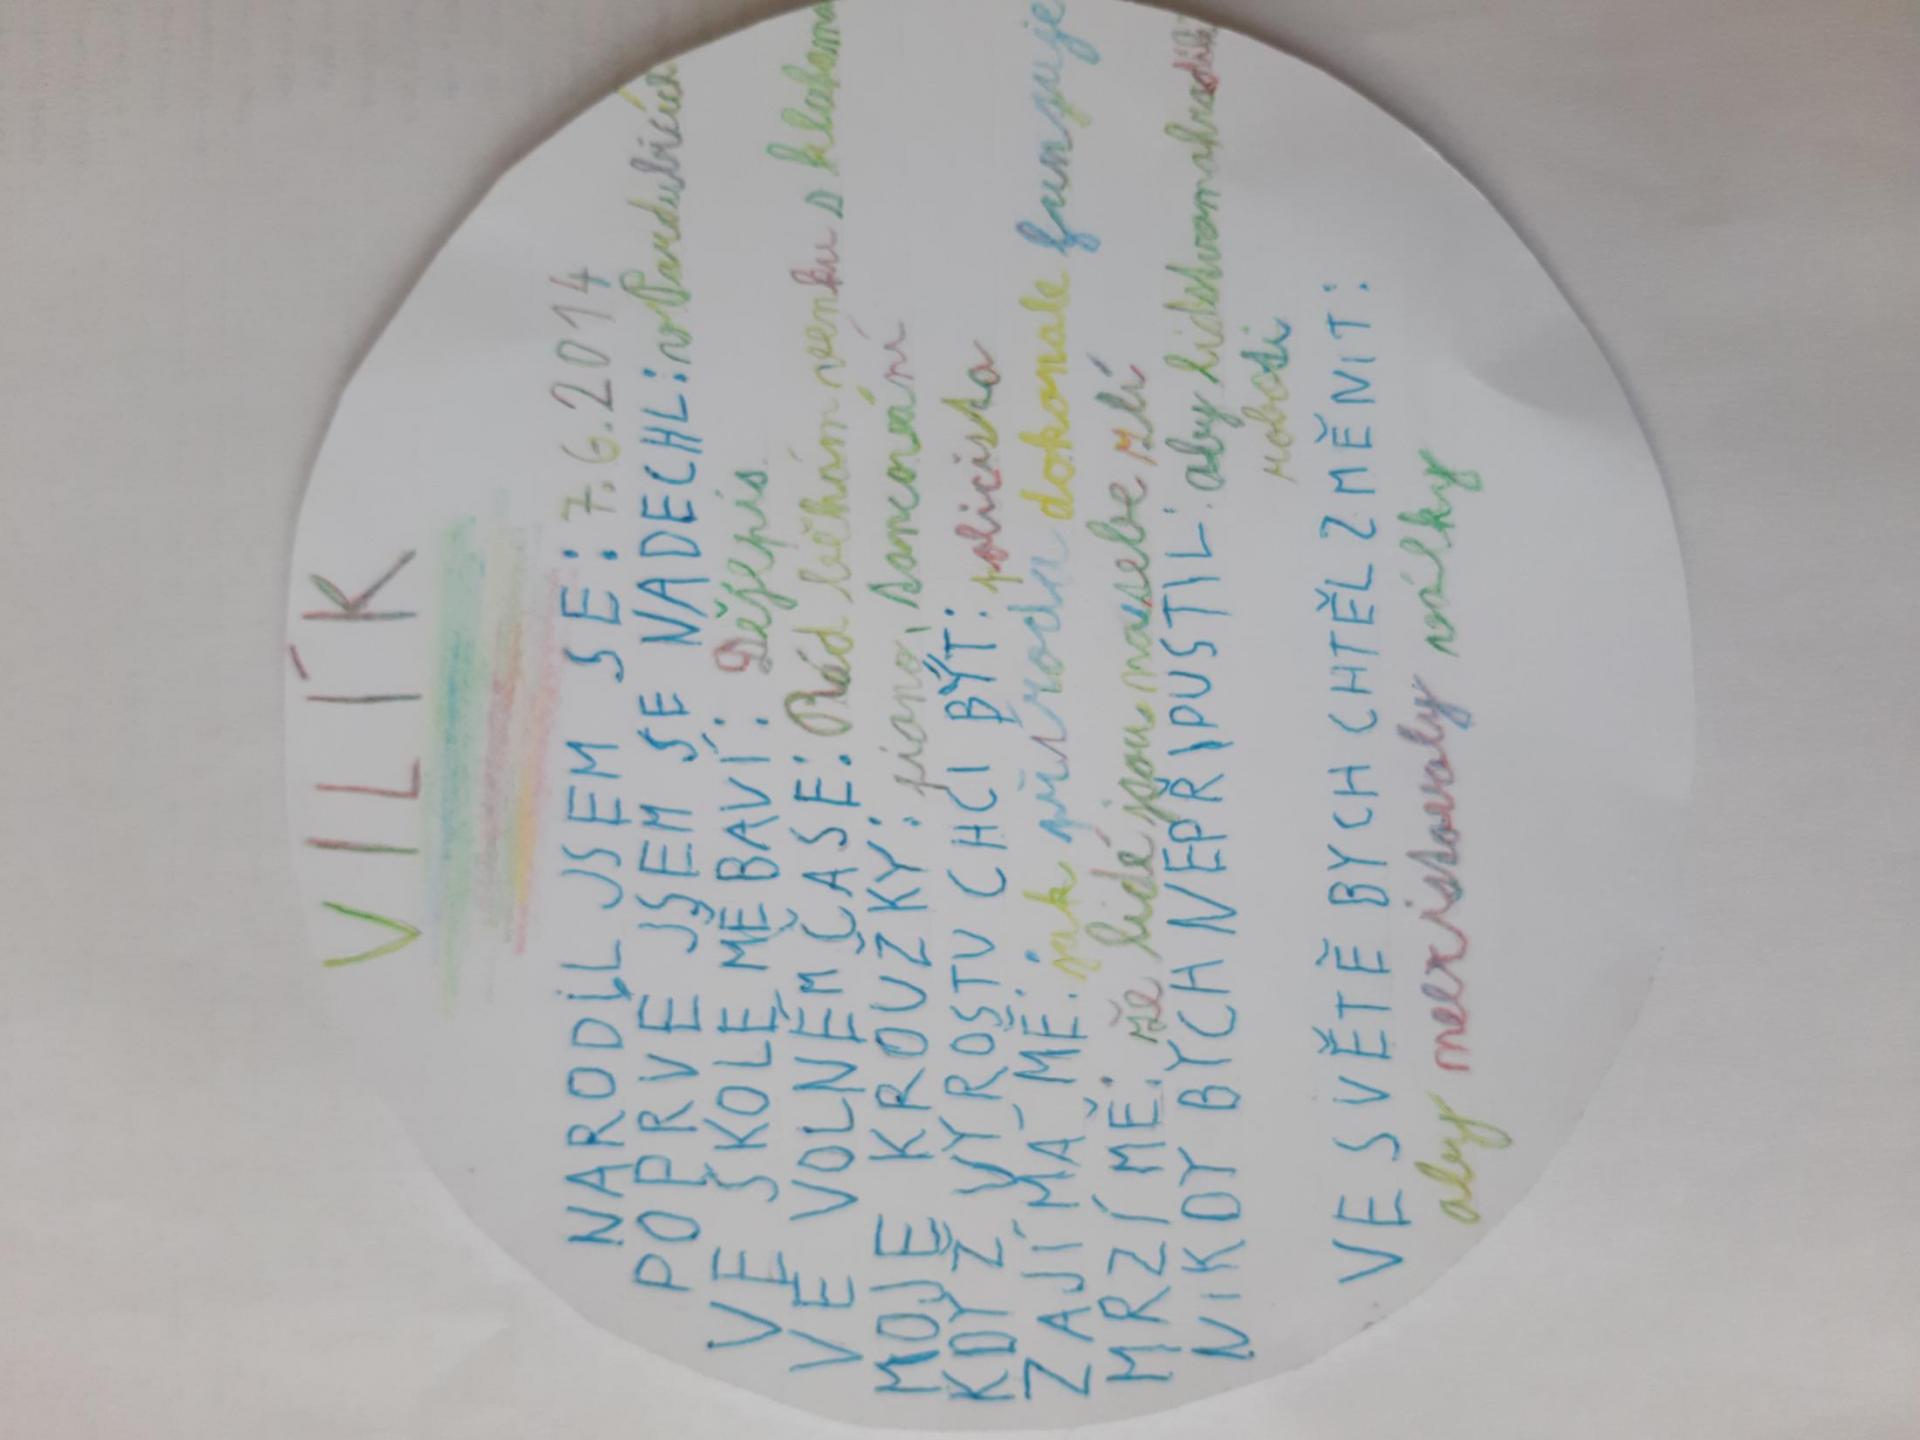 VILÍK
NARODIL JSEM SE: 7.6.2014
POPRVÉ JSEM SE NADECHL: v Pardubicích
VE ŠKOLE MĚ BAVÍ: Dějepis
VE VOLNÉM ČASE: Rád běhám venku s klukama
MOJE KROUŽKY: piano,
KDYŽ VYROSTU CHCI BÝT: policista
ZAJÍMÁ MĚ: jak příroda dokonale funguje
MRZÍ MĚ: že lidé jsou nasebe zlí
NIKDY BYCH NEPŘIPUSTIL: aby lidstvo nahradili
roboti
VE SVĚTĚ BYCH CHTĚL ZMĚNIT:
aby neexistovaly války